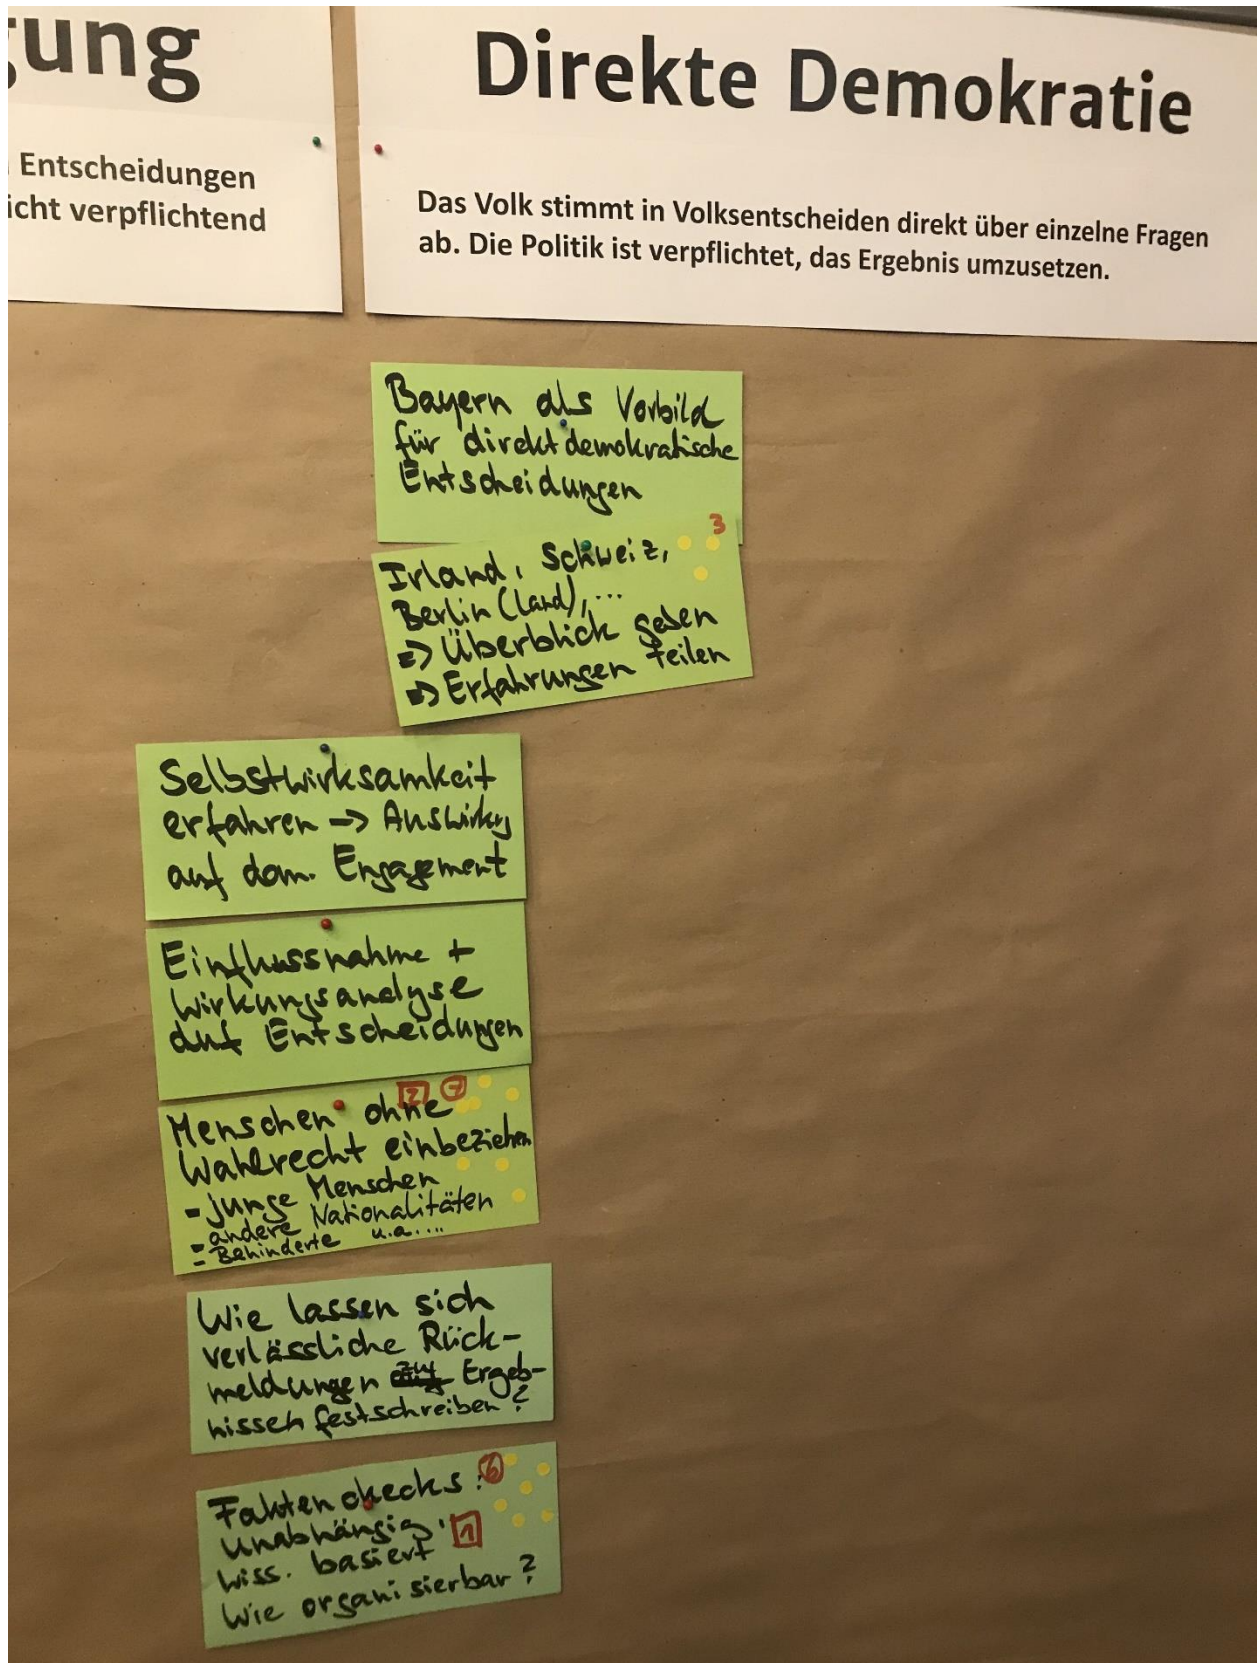 gung
Entscheidungen
icht verpflichtend
Direkte Demokratie
Das Volk stimmt in Volksentscheiden direkt über einzelne Fragen
ab. Die Politik ist verpflichtet, das Ergebnis umzusetzen.
Bayern als Vorbild
für direktdemokratische
Entscheidungen
3
Irland, Schweiz,
Berlin (Land), ...
=> Überblick geben
=> Erfahrungen teilen
Selbstwirksamkeit
erfahren -> Auswirkg
auf dem. Engagement
Einflussnahme +
Wirkungsanalyse
auf Entscheidungen
2 7
Menschen ohne
Wahlrecht einbeziehen
- junge Menschen
- andere Nationalitäten
- Behinderte u.a....
Wie lassen sich
verlässliche Rück-
meldungen zu Ergeb-
nissen festschreiben?
Faktenchecks: 6
unabhängig, 1
wiss. basiert
Wie organisierbar?